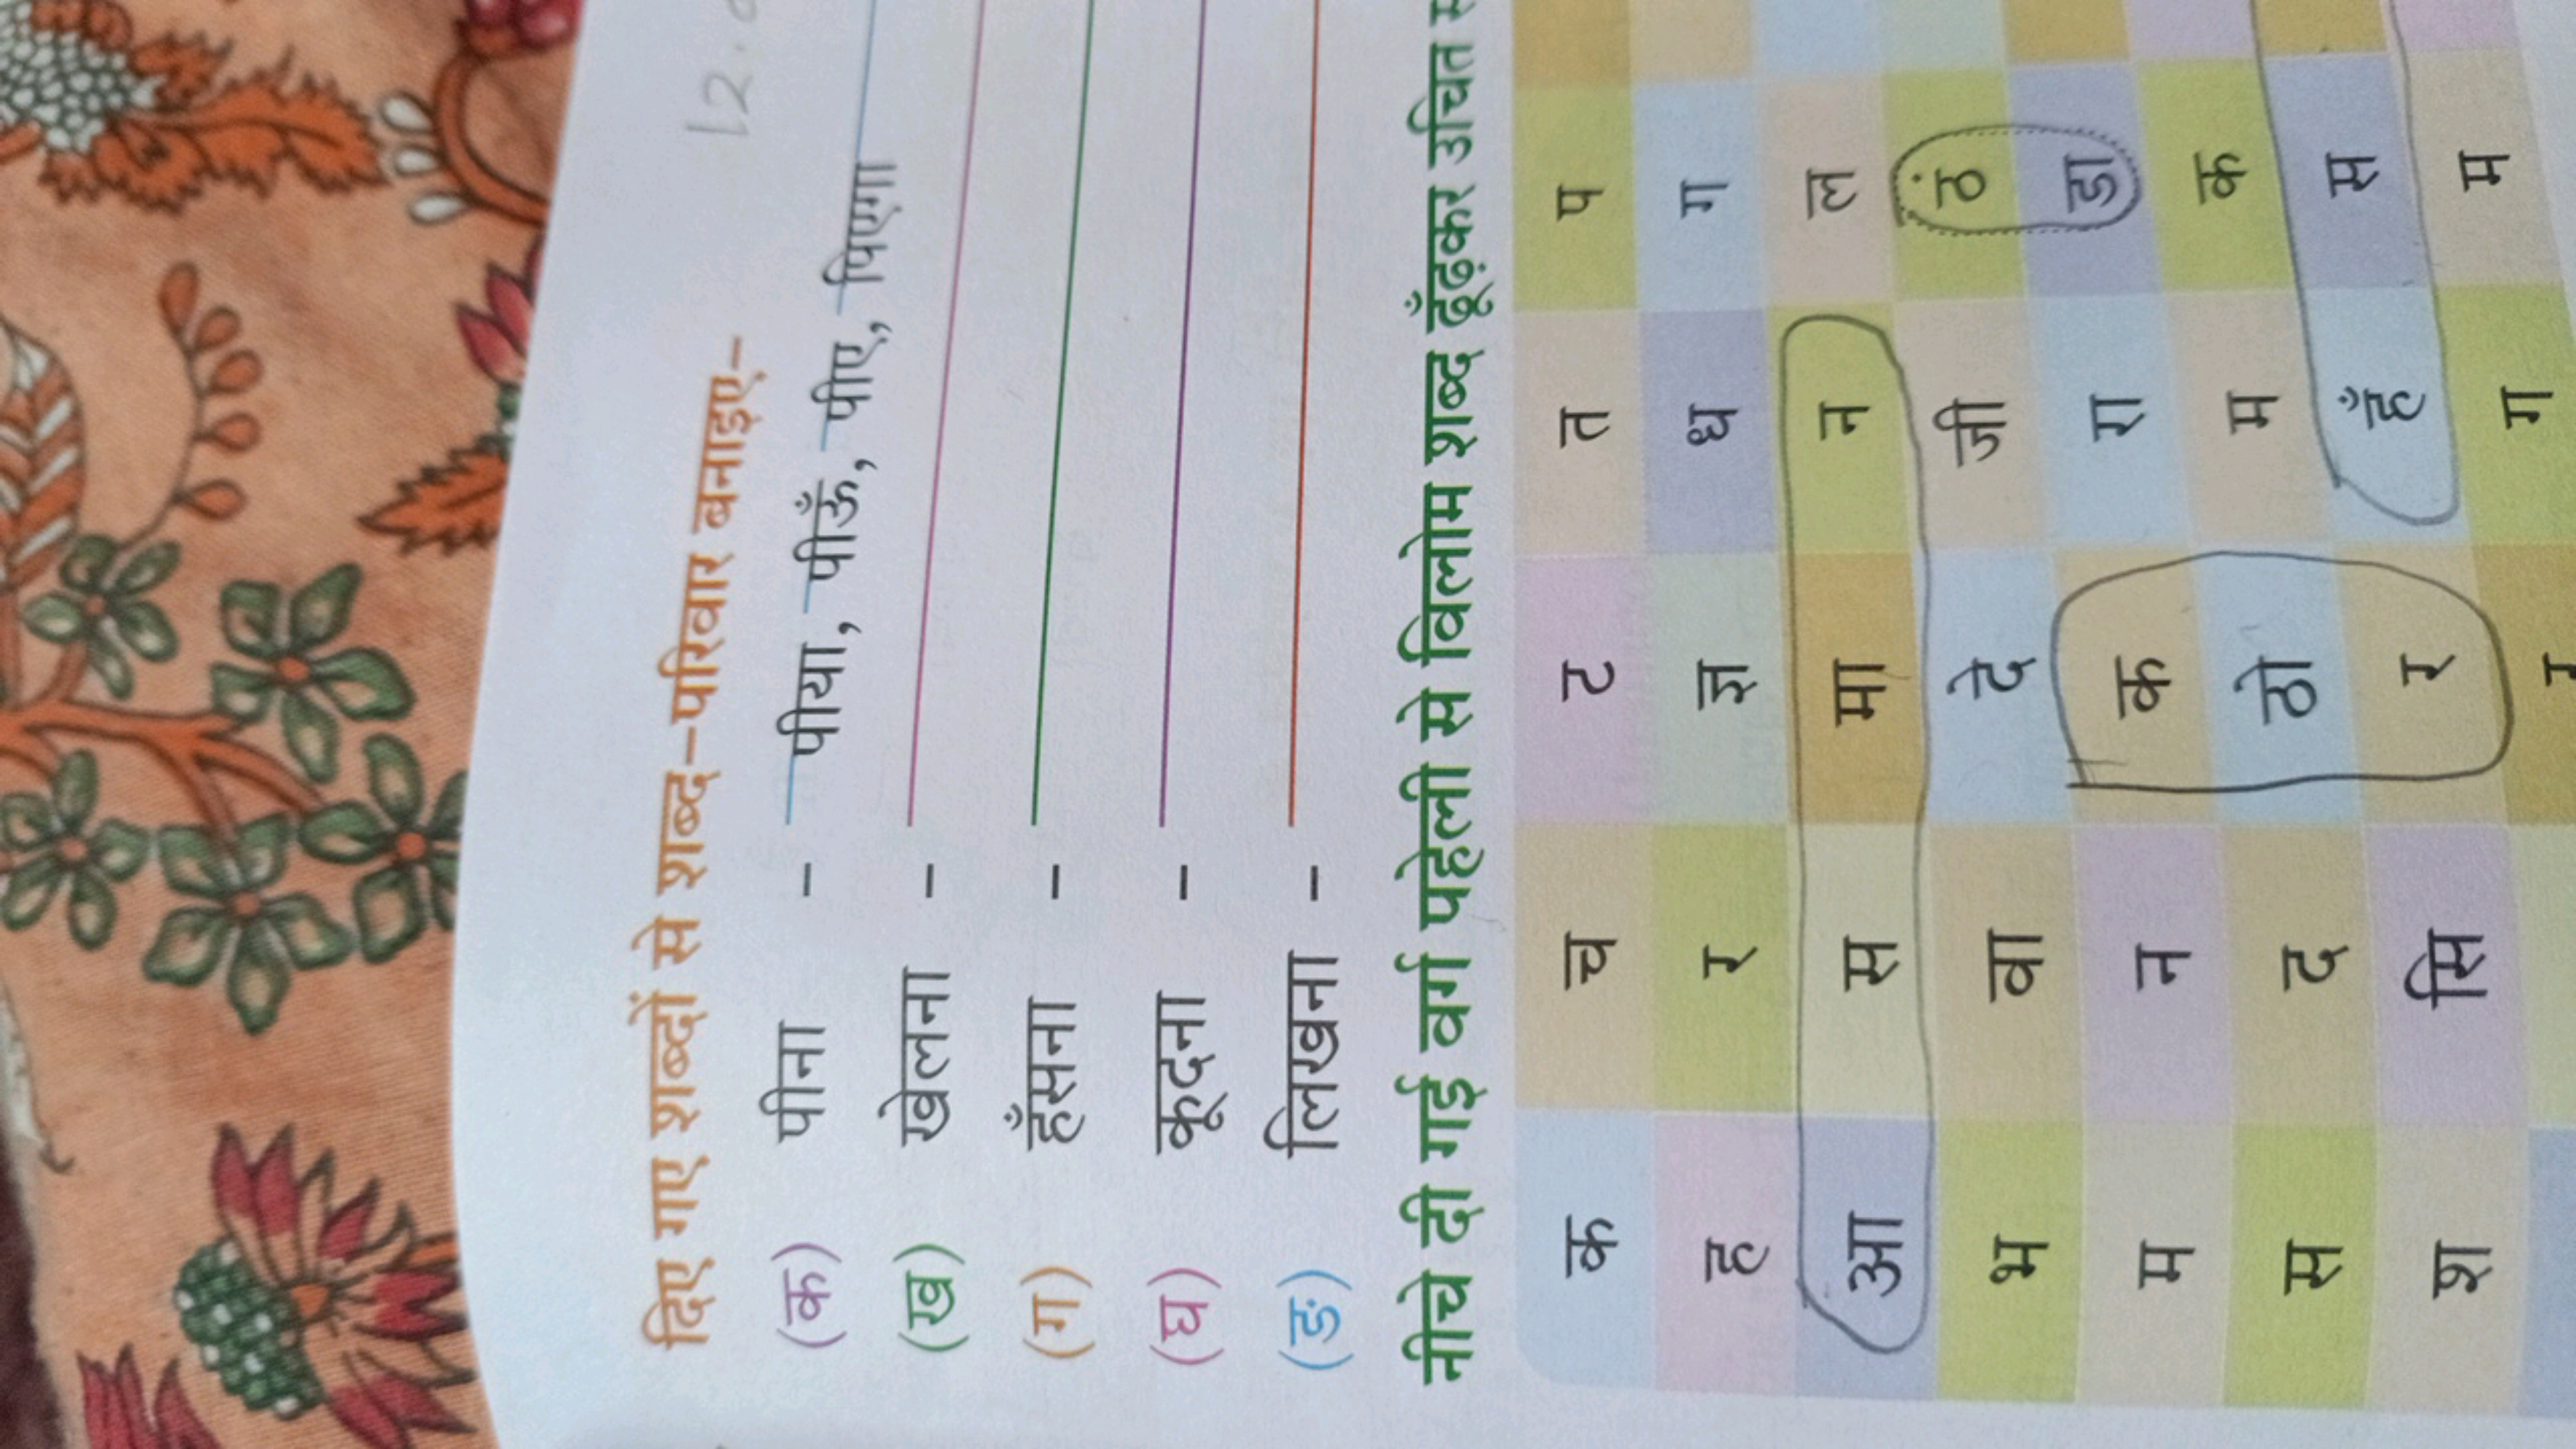 12.
दिए गए शब्दों से शब्द-परिवार बनाइए-
(क) पीना - पीया, पीऊँ, पीए, पिएगा
(ख) खेलना -
(ग) हँसना -
(घ) कूदना -
(ङ) लिखना -
नीचे दी गई वर्ग पहेली से विलोम शब्द ढूँढ़कर उचित
क च ट त प
ह र ज्ञ ध ग
आ स मा न ल
भ वा दे जी ठं
म न क रा डा
स द ठो म क
श सि र हँ स
ग म